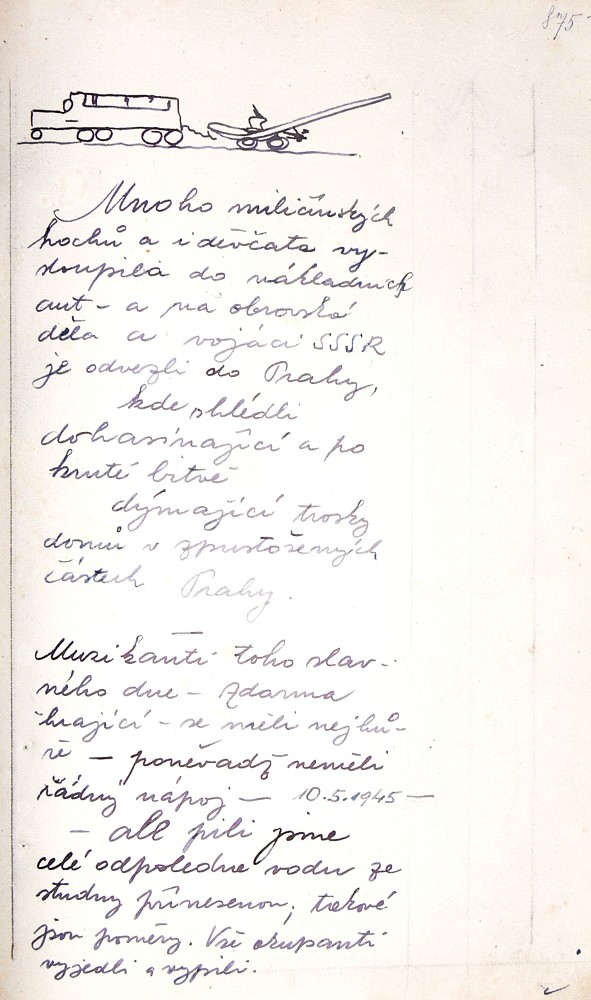 875
Mnoho miličínských
hochů a i děvčata vy-
stoupila do nákladních
aut - a na obrovská
děla a vojáci SSSR
je odvezli do Prahy,
kde shlédli
dohasínající a po
kruté bitvě
dýmající trosky
domů v zpustošených
částech Prahy.
Muzikanti toho slav-
ného dne - zdarma
hrající - se měli nejhů-
ře - poněvadž neměli
řádný nápoj - 10.5.1945 -
- ale pili jsme
celé odpoledne vodu ze
studny přinesenou, takové
jsou poměry. Vše okupanti
vyjedli a vypili.